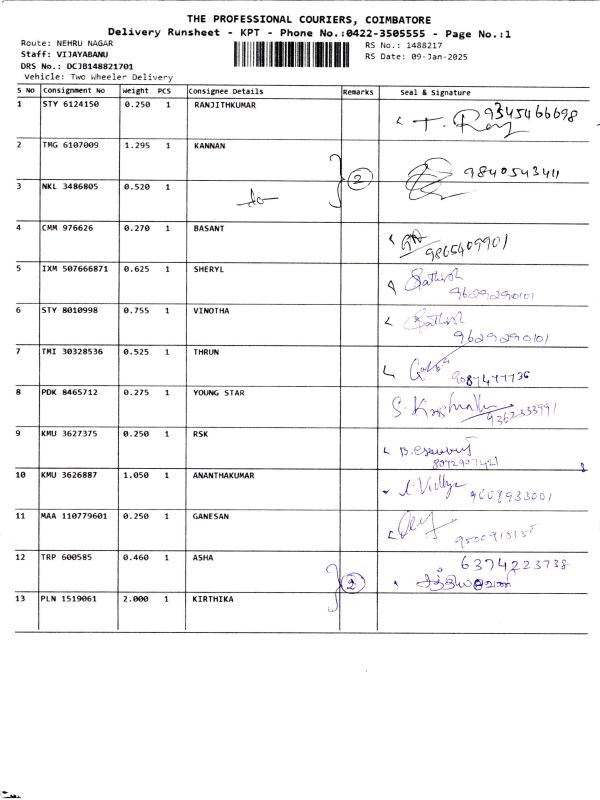 THE PROFESSIONAL COURIERS, COIMBATORE
Delivery Runsheet - KPT - Phone No.:0422-3505555 - Page No.:1
Route: NEHRU NAGAR
Staff: VIJAYABANU
DRS No.: DCJB148821701
Vehicle: Two Wheeler Delivery
RS No.: 1488217
RS Date: 09-Jan-2025
S No Consignment No Weight PCS Consignee Details Remarks Seal & Signature
1 STY 6124150 0.250 1 RANJITHKUMAR 9345466698
T. Roy
2 TMG 6107009 1.295 1 KANNAN
2 9840543411
3 NKL 3486805 0.520 1
4 CMM 976626 0.270 1 BASANT
9865409901
5 IXM 507666871 0.625 1 SHERYL
Sathish
9629290101
6 STY 8010998 0.755 1 VINOTHA
Sathish
9629290101
7 TMI 30328536 0.525 1 THRUN
9087477736
8 PDK 8465712 0.275 1 YOUNG STAR
9362333991
9 KMU 3627375 0.250 1 RSK
8072907421
10 KMU 3626887 1.050 1 ANANTHAKUMAR
Vidhya
11 MAA 110779601 0.250 1 GANESAN
12 TRP 600585 0.460 1 ASHA 6374223738
2
13 PLN 1519061 2.000 1 KIRTHIKA